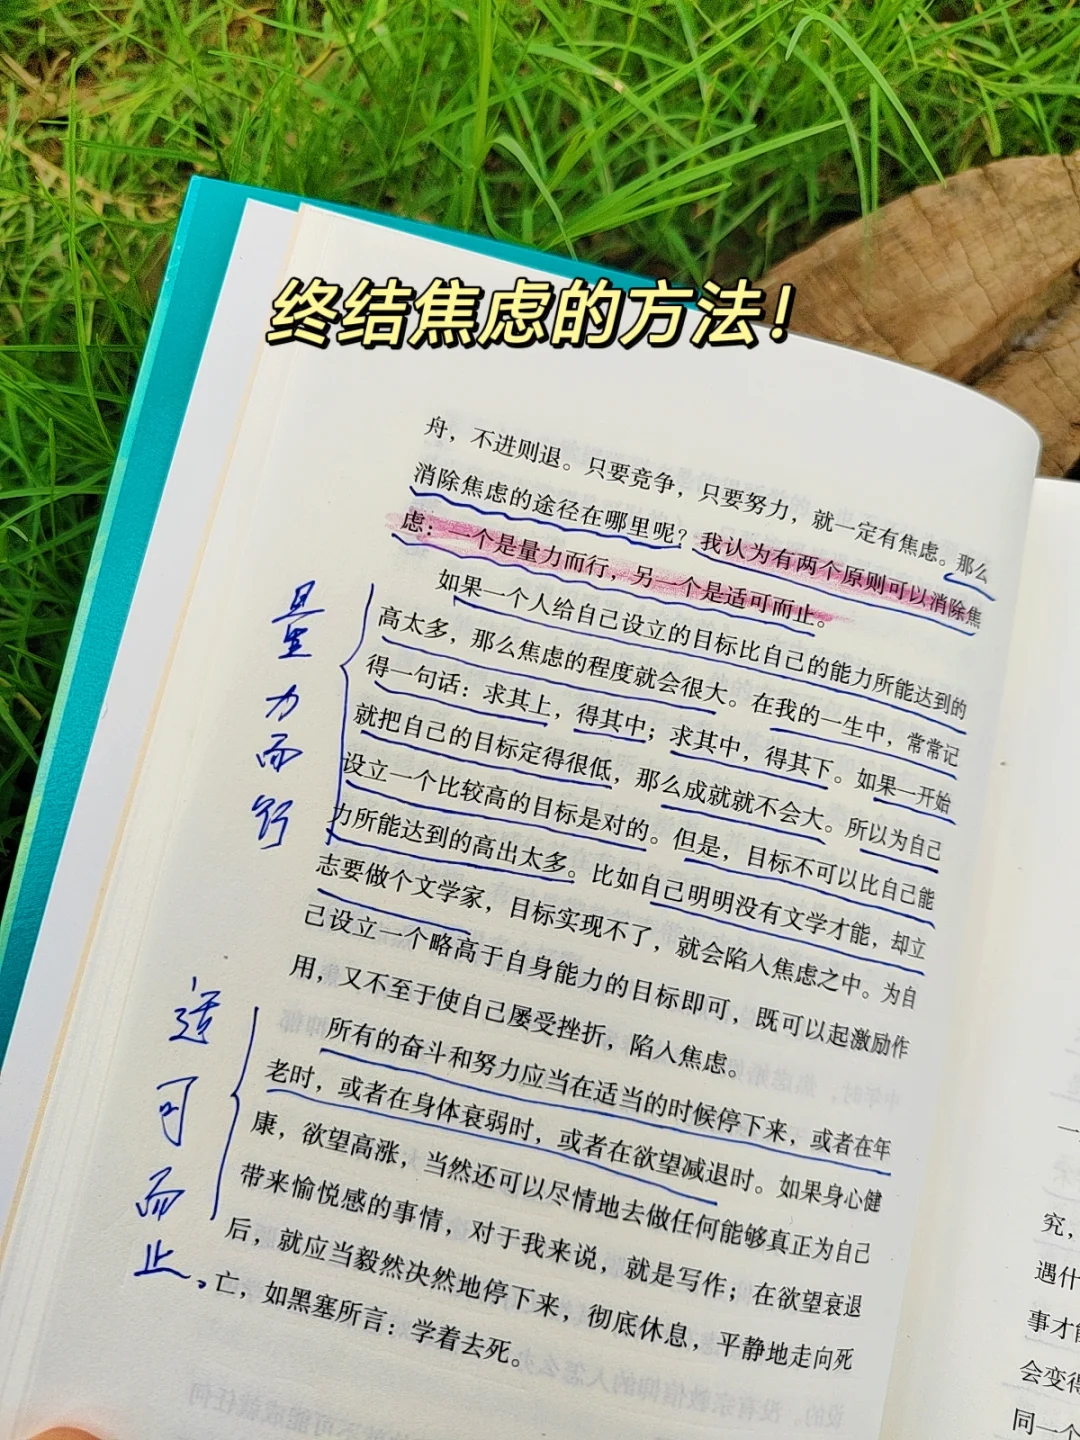 终结焦虑的方法！
舟，不进则退。只要竞争，只要努力，就一定有焦虑。那么
消除焦虑的途径在哪里呢？我认为有两个原则可以消除焦
虑：一个是量力而行，另一个是适可而止。
如果一个人给自己设立的目标比自己的能力所能达到的
高太多，那么焦虑的程度就会很大。在我的一生中，常常记
得一句话：求其上，得其中；求其中，得其下。如果一开始
就把自己的目标定得很低，那么成就就不会大。所以为自己
设立一个比较高的目标是对的。但是，目标不可以比自己能
力所能达到的高出太多。比如自己明明没有文学才能，却立
志要做个文学家，目标实现不了，就会陷入焦虑之中。为自
己设立一个略高于自身能力的目标即可，既可以起激励作
用，又不至于使自己屡受挫折，陷入焦虑。
所有的奋斗和努力应当在适当的时候停下来，或者在年
老时，或者在身体衰弱时，或者在欲望减退时。如果身心健
康，欲望高涨，当然还可以尽情地去做任何能够真正为自己
带来愉悦感的事情，对于我来说，就是写作；在欲望衰退
后，就应当毅然决然地停下来，彻底休息，平静地走向死
亡，如黑塞所言：学着去死。
量力而行
适可而止。
究，
遇什
事才能
会变得
同一个